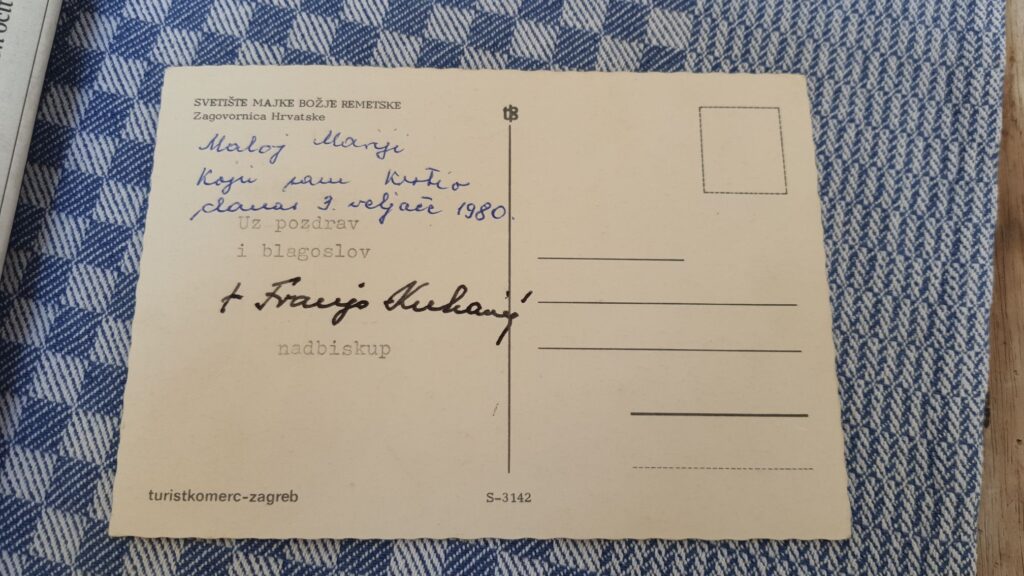 SVETIŠTE MAJKE BOŽJE REMETSKE
Zagovornica Hrvatske
Maloj Mariji
Koju sam Krstio
danas 3. veljače 1980.
Uz pozdrav
i blagoslov
+ Franjo Kuharić
nadbiskup
turistkomerc-zagreb
S-3142